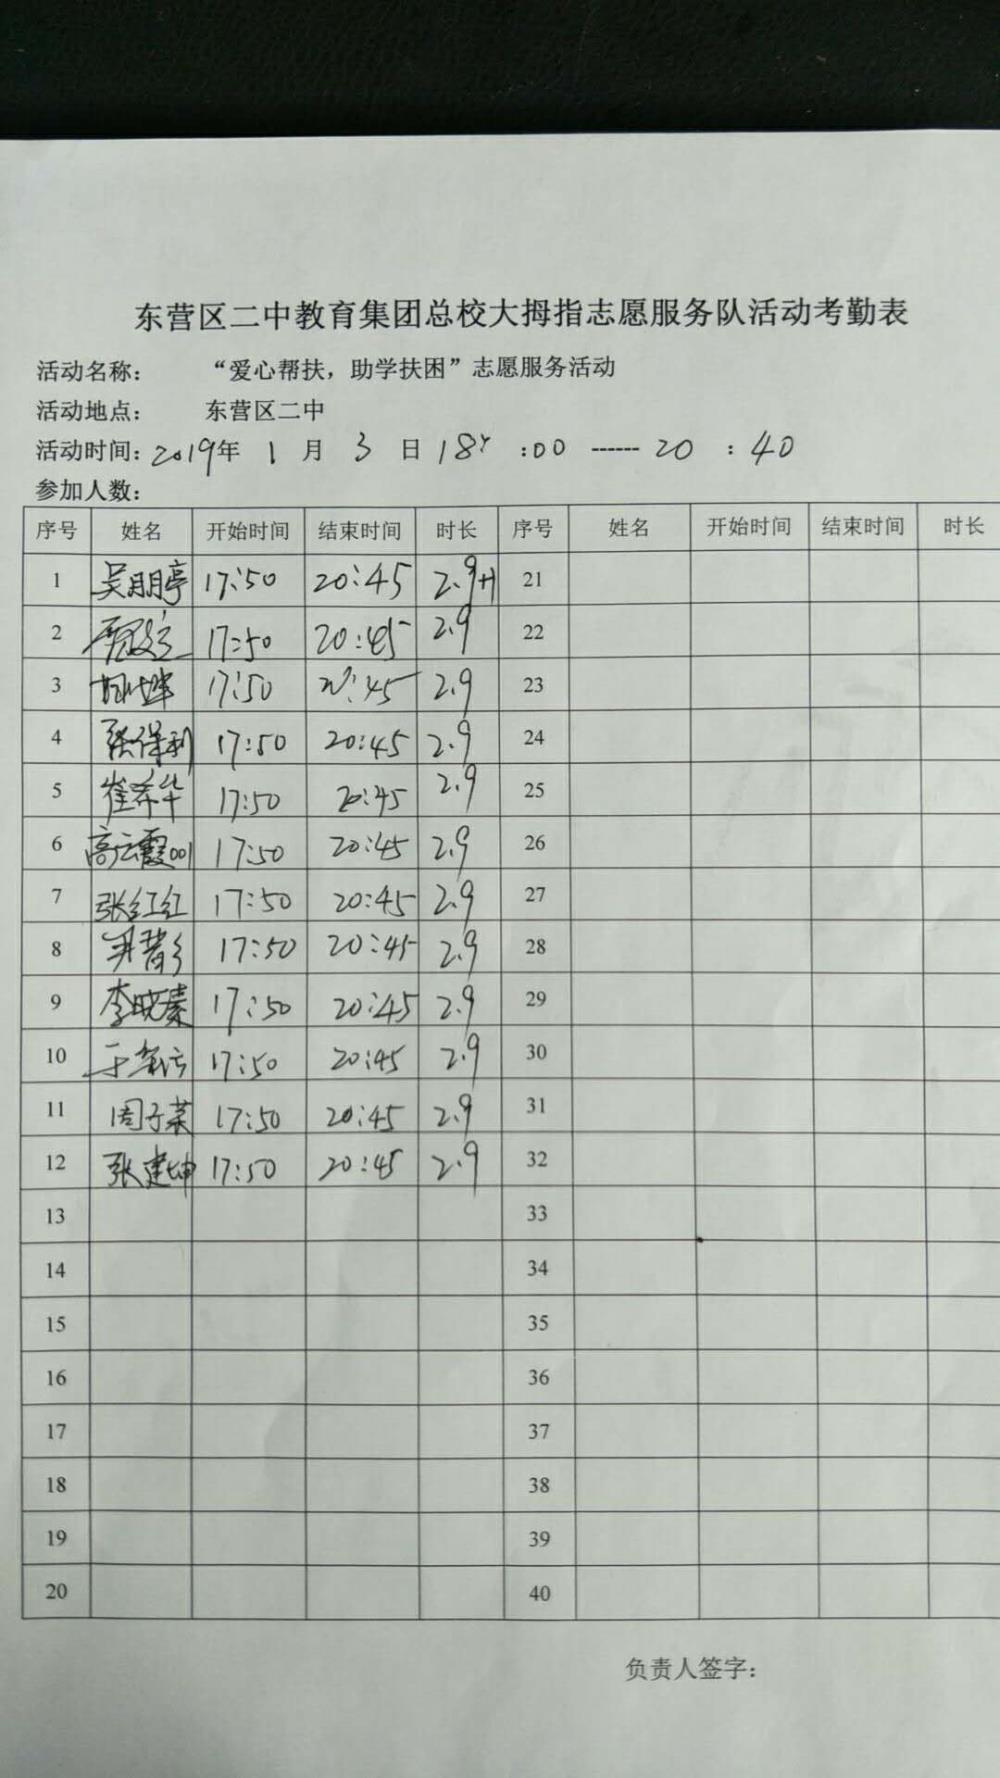 东营区二中教育集团总校大拇指志愿服务队活动考勤表
活动名称: “爱心帮扶，助学扶困”志愿服务活动
活动地点: 东营区二中
活动时间: 2019年 1 月 3 日 18 :00 ------ 20 : 40
参加人数:
序号 姓名 开始时间 结束时间 时长 序号 姓名 开始时间 结束时间 时长
1 吴朋亭 17:50 20:45 2.9+1 21
2 17:50 20:45 2.9 22
3 17:50 20:45 2.9 23
4 张保利 17:50 20:45 2.9 24
5 崔希华 17:50 20:45 2.9 25
6 高云霞001 17:50 20:45 2.9 26
7 张红红 17:50 20:45 2.9 27
8 17:50 20:45 2.9 28
9 李晓蓁 17:50 20:45 2.9 29
10 17:50 20:45 2.9 30
11 周子荣 17:50 20:45 2.9 31
12 张建坤 17:50 20:45 2.9 32
13 33
14 34
15 35
16 36
17 37
18 38
19 39
20 40
负责人签字: